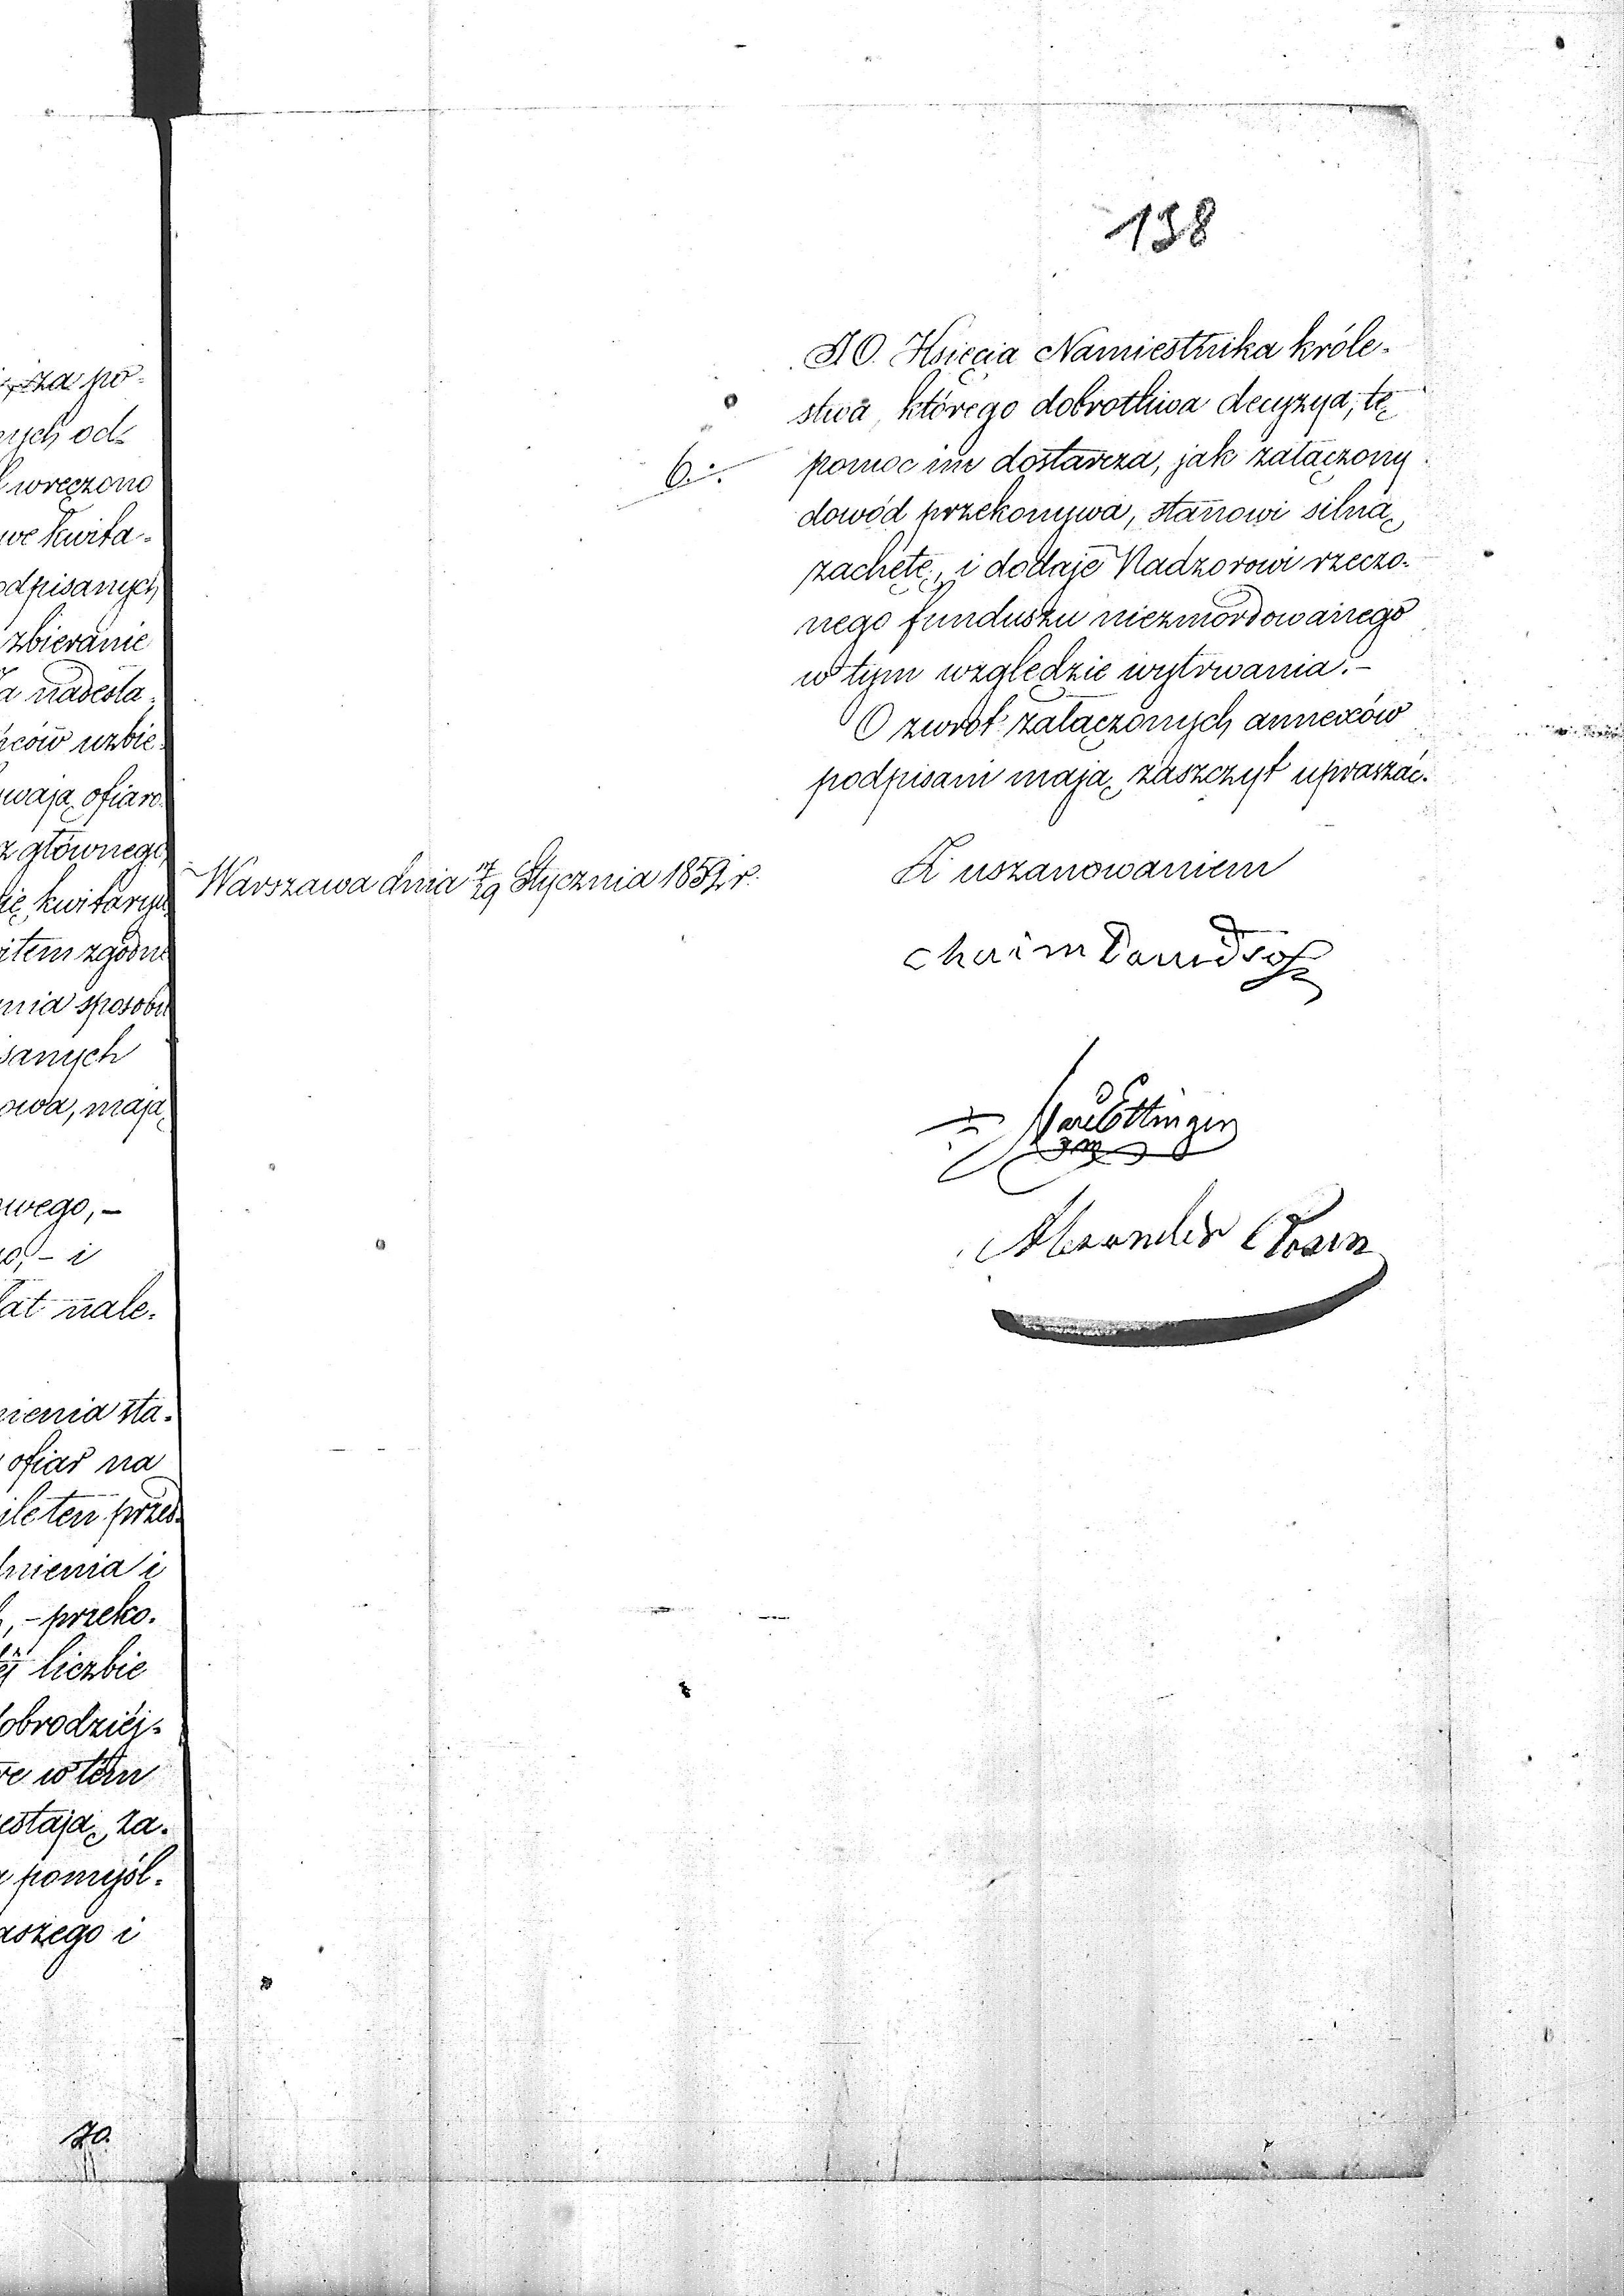 za po-
ych od-
wręczono
we kwita-
odpisanych
zbieranie
a nadesła-
ców uzbie-
wają ofiaro
z głównego
ię kwitaryu
item zgodne
nia sposobu
sanych
owa, mają
wego,-
o,- i
lat nale-
nienia sta-
ofiar na
ile ten przed-
nienia i
,- przeko-
ej liczbie
obrodziéj-
re w tém
estają za-
pomyśl-
aszego i
JO.
138
JO. Księcia Namiestnika króle-
stwa, którego dobrotliwa decyzya, tę
6./.
pomoc im dostarcza, jak załączony
dowód przekonywa, stanowi silną
zachętę, i dodaje Nadzorowi rzeczo-
nego funduszu niezmordowanego
w tym względzie wytrwania.-
O zwrot załączonych annexów
podpisani mają zaszczyt upraszać.
Warszawa dnia 17/29 Stycznia 1859 r.
Z uszanowaniem
Chaim Dawidsohn
Ettinger
Alexander Rosen